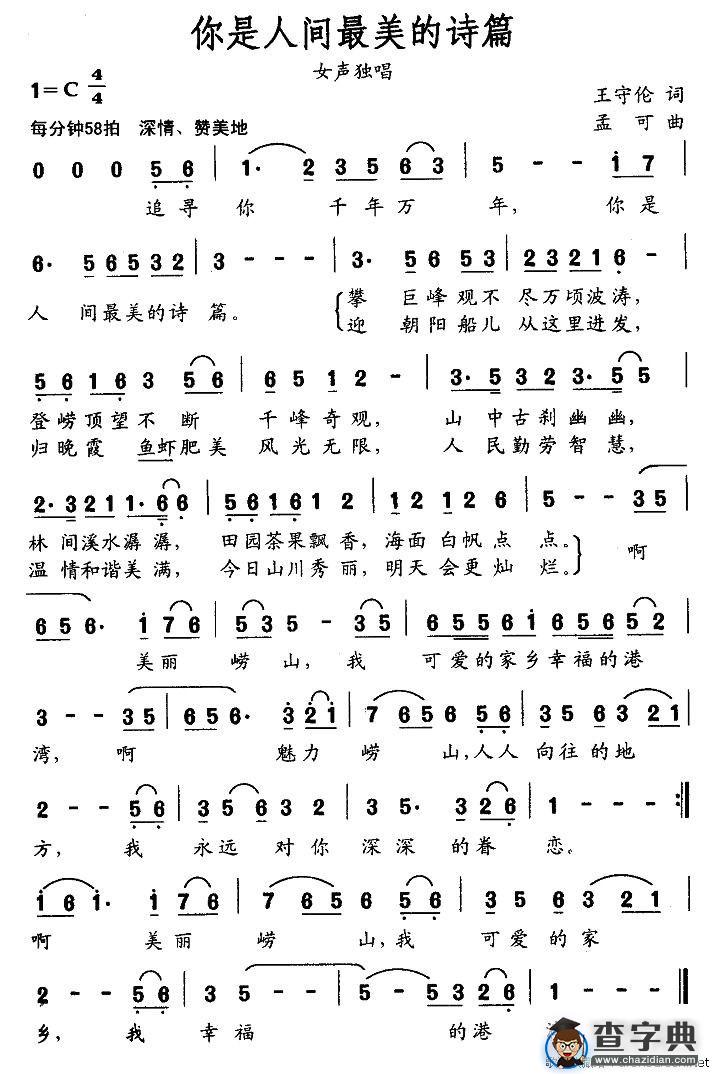 你是人间最美的诗篇
女声独唱
1=C 4/4
王守伦 词
每分钟58拍 深情、赞美地
孟可曲
0 0 0 5 6 | 1· 2 3 5 6 3 | 5 - - 1 7 |
追寻 你 千年万 年, 你是
6· 5 6 5 3 3 2 | 3 - - - | 3· 5 6 5 3 | 2 3 2 1 6 |
人 间最美的诗 篇。 攀 巨峰观不 尽万顷波涛,
迎 朝阳船儿 从这里进发,
5 6 1 6 3 5 6 | 6 5 1 2 - | 3· 5 3 2 3· 5 5 |
登崂顶望不 断 千峰奇观, 山 中古刹幽幽,
归晚霞 鱼虾肥美 风光无限, 人 民勤劳智慧,
2· 3 2 1 1· 6 6 | 5 6 1 6 1 2 | 1 2 1 2 6 | 5 - - 3 5 |
林 间溪水潺潺, 田园茶果飘香, 海面白帆点 点。 啊
温 情和谐美满, 今日山川秀丽, 明天会更灿 烂。
6 5 6· 1 7 6 | 5 3 5 - 3 5 | 6 5 5 6 1 6 5 6 5 2 |
美丽 崂山, 我 可爱的家乡幸福的港
3 - - 3 5 | 6 5 6· 3 2 1 | 7 6 5 6 5 6 | 5 5 3 6 3 2 1 |
湾, 啊 魅力 崂 山,人人 向往的地
2 - - 5 6 | 3 5 5 6 3 2 | 3 5· 3 2 6 | 1 - - - :|
方, 我 永远 对你 深深 的眷 恋。
1 6 1· 1 7 6 | 7 6 5 5 6 | 5 5 3 6 3 2 1 |
啊 美丽 崂 山,我 可爱的家
2 - - 5 6 | 3 5 5 6 3 - | 5 - 5 3 2 6 | 1 - - - |
乡, 我 幸福 的港
查字典
www.chazidian.com